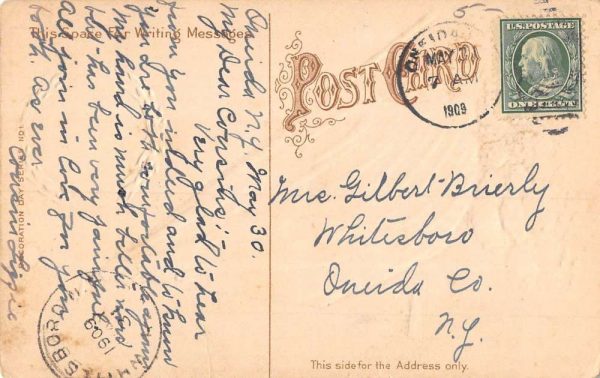 This Space For Writing Messages
Oneida N.Y. May 30.
My Dear Cousins:-
Very glad to hear
from you indeed and to know
you are both comfortable
My hand is much better now
who has been very painful
All join in love for you
both. As ever
DECORATION DAY SERIES NO 1
WHITESBORO
1909
POST CARD
ONEIDA
MAY
7 AM
1909
U.S. POSTAGE
ONE CENT
Mrs. Gilbert Brierly
Whitesboro
Oneida Co.
N.Y.
This side for the Address only.